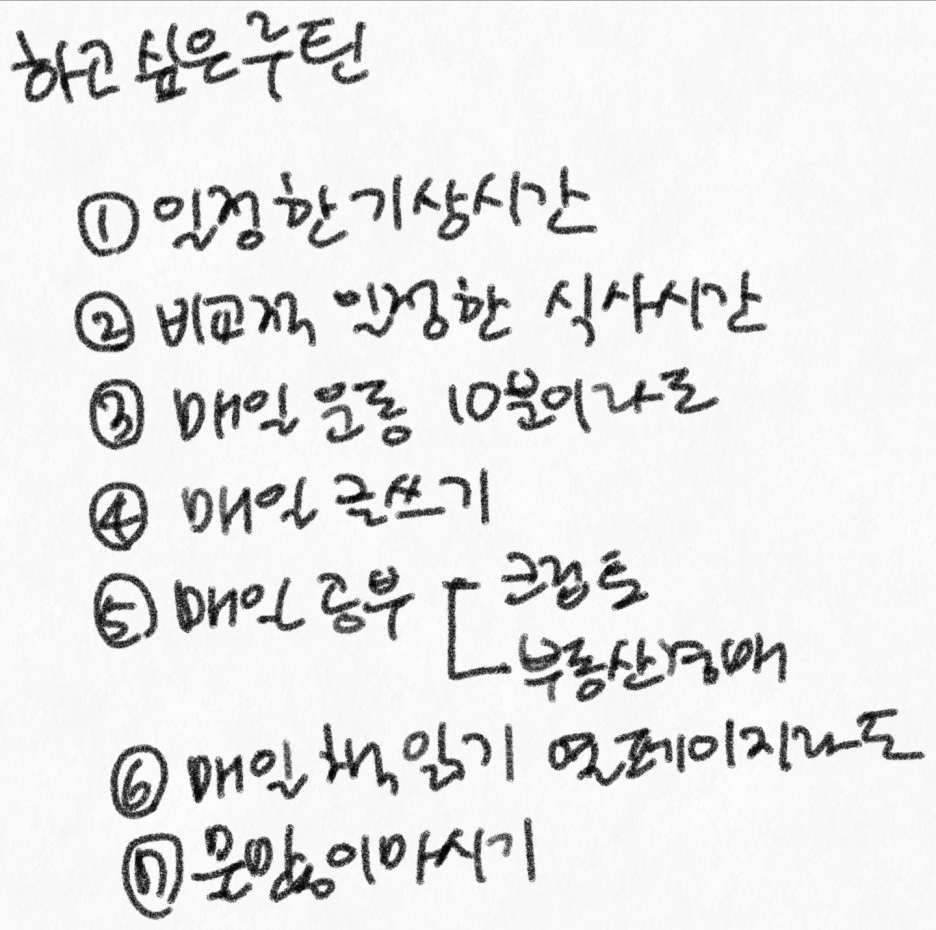 하고 싶은 루틴
① 일정한 기상시간
② 비교적 일정한 식사시간
③ 매일 운동 10분이라도
④ 매일 글쓰기
⑤ 매일 공부 크립토
부동산경매
⑥ 매일 책 읽기 열페이지라도
⑦ 물많이마시기